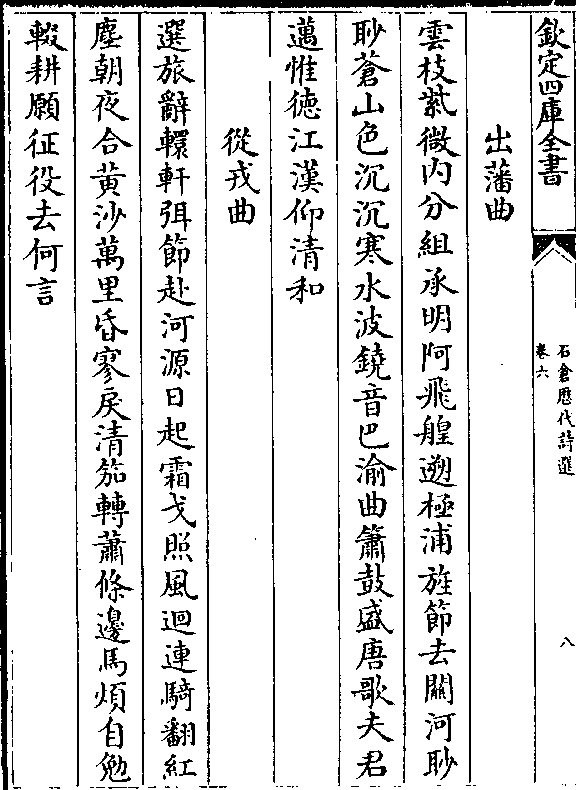 欽定四庫全書
石倉歷代詩選
卷六
八
出藩曲
雲枝紫微内分組承明阿飛艎遡極浦旌節去關河眇
眇蒼山色沉沉寒水波鐃音巴渝曲簫鼓盛唐歌夫君
邁惟德江漢仰清和
從戎曲
選旅辭轘軒弭節赴河源日起霜戈照風迴連騎翻紅
塵朝夜合黄沙萬里昏寥戾清笳轉蕭條邊馬煩自勉
輟耕願征役去何言